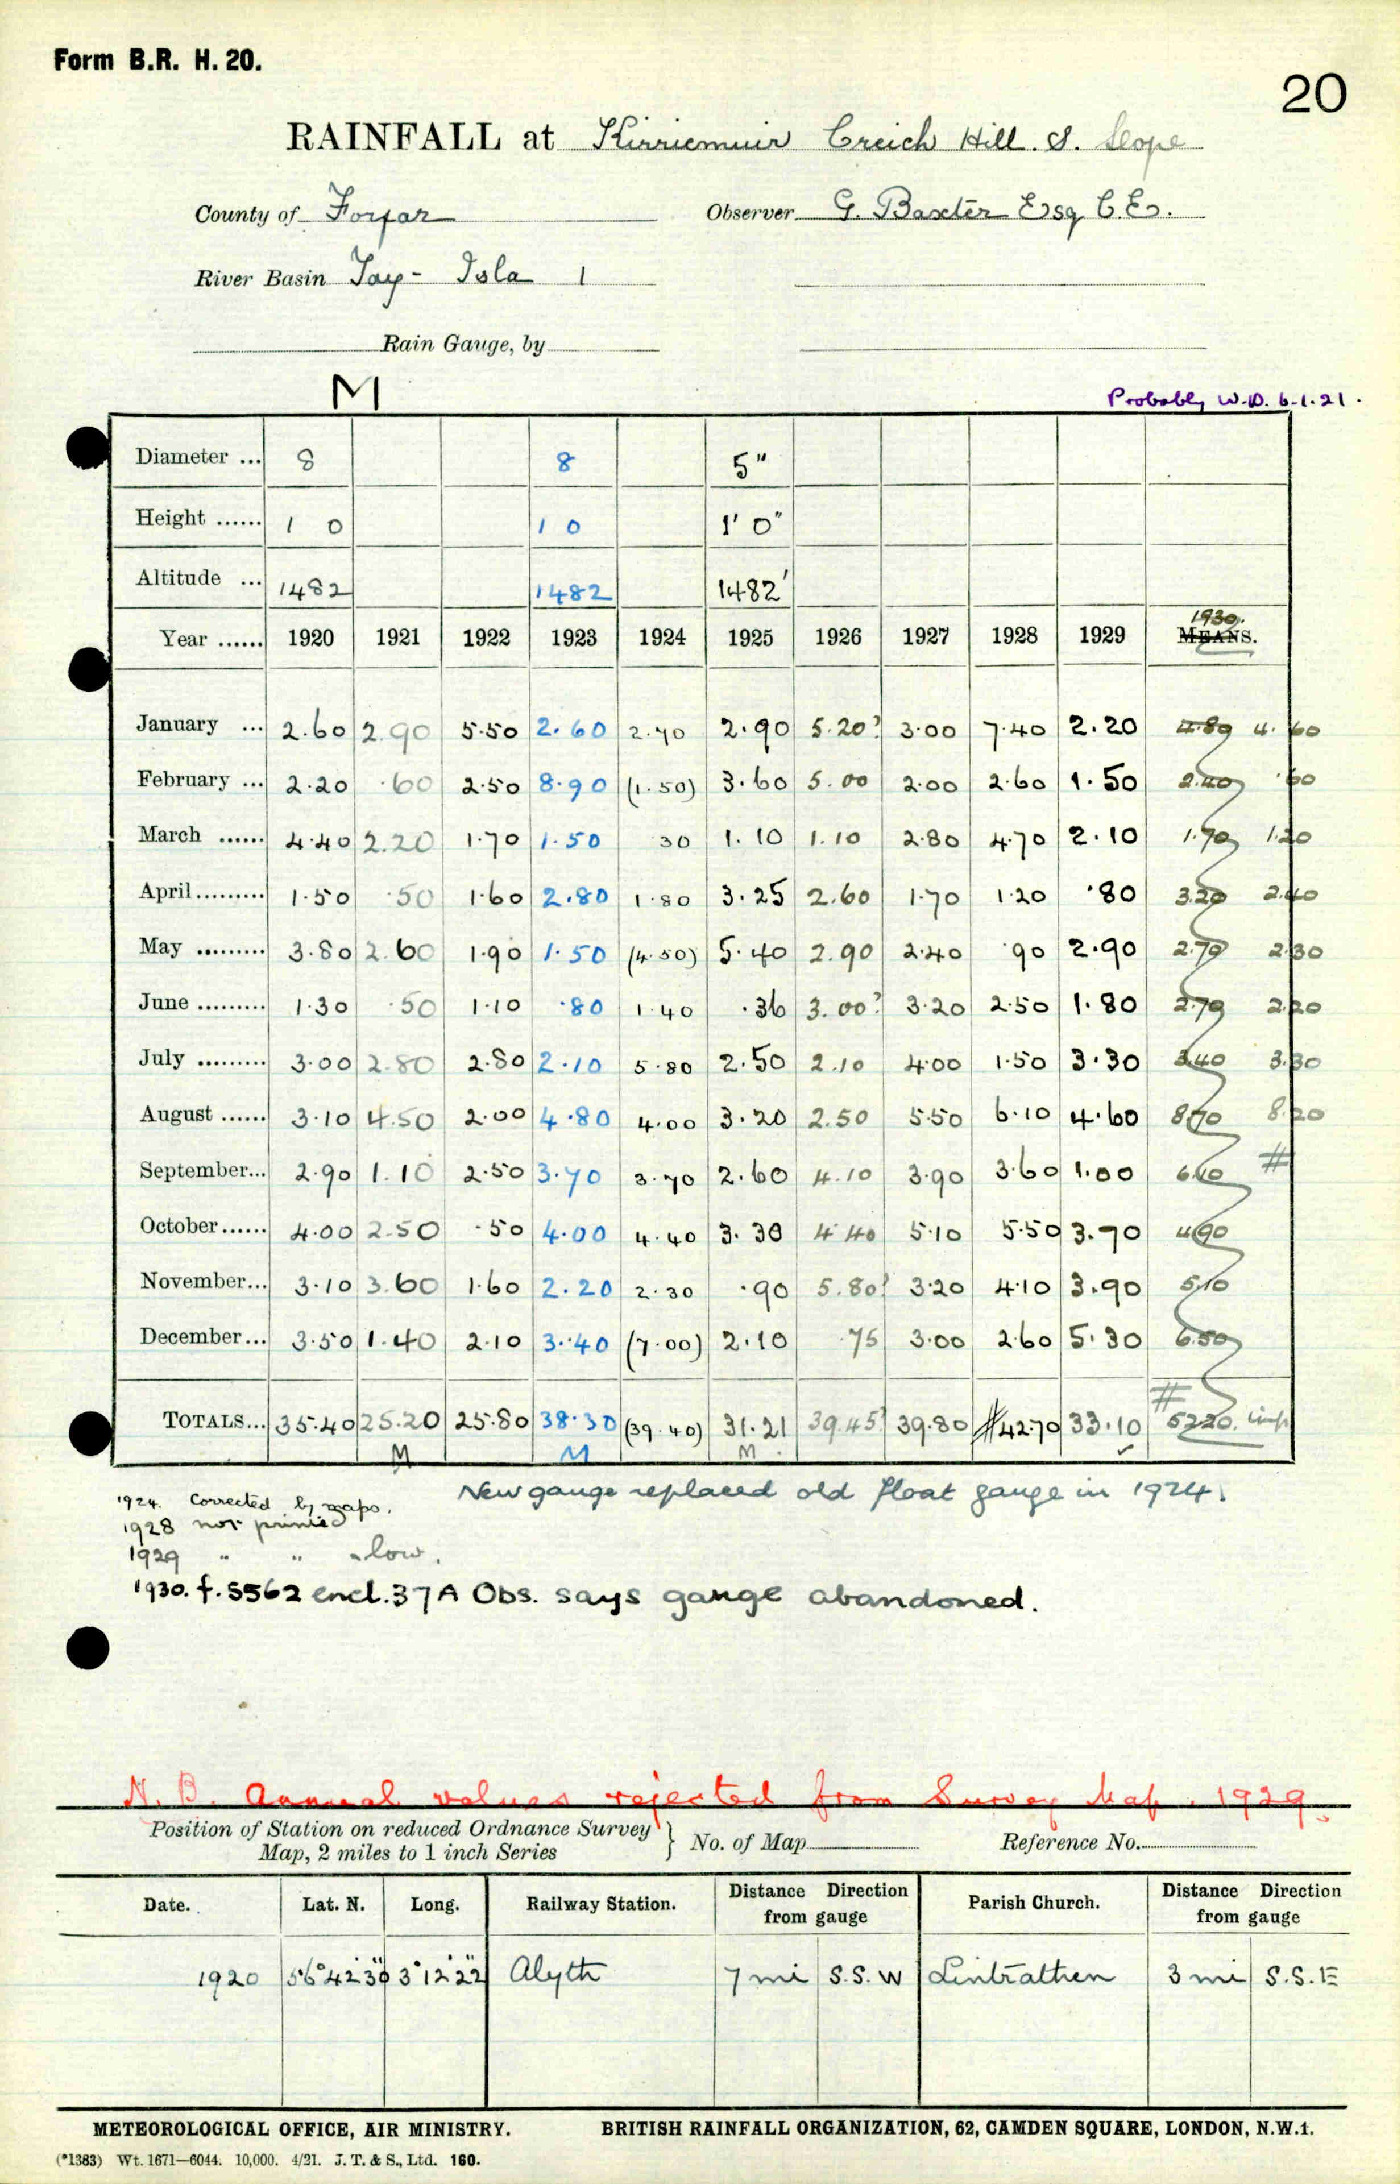 Form B.R. H. 20.
20
RAINFALL at Kirriemuir Creich Hill. S. Slope
County of Forfar Observer G. Baxter Esq C.E.
River Basin Tay - Isla 1
Rain Gauge, by
M
Probably W.D. 6.1.21.
Diameter ... 8 8 5"
Height ...... 1 0 1 0 1' 0"
Altitude ... 1482 1482 1482'
Year ...... 1920 1921 1922 1923 1924 1925 1926 1927 1928 1929 1930. MEANS.
January ... 2.60 2.90 5.50 2.60 2.70 2.90 5.20? 3.00 7.40 2.20 4.80 4.60
February ... 2.20 .60 2.50 8.90 (1.50) 3.60 5.00 2.00 2.60 1.50 2.40 .60
March ...... 4.40 2.20 1.70 1.50 30 1.10 1.10 2.80 4.70 2.10 1.70 1.20
April......... 1.50 .50 1.60 2.80 1.80 3.25 2.60 1.70 1.20 .80 3.20 2.40
May ......... 3.80 2.60 1.90 1.50 (4.50) 5.40 2.90 2.40 .90 2.90 2.70 2.30
June ......... 1.30 .50 1.10 .80 1.40 .36 3.00? 3.20 2.50 1.80 2.70 2.20
July ......... 3.00 2.80 2.80 2.10 5.80 2.50 2.10 4.00 1.50 3.30 3.40 3.30
August ...... 3.10 4.50 2.00 4.80 4.00 3.20 2.50 5.50 6.10 4.60 8.70 8.20
September... 2.90 1.10 2.50 3.70 3.70 2.60 4.10 3.90 3.60 1.00 6.10 #
October...... 4.00 2.50 .50 4.00 4.40 3.30 4.40 5.10 5.50 3.70 4.90
November... 3.10 3.60 1.60 2.20 2.30 .90 5.80? 3.20 4.10 3.90 5.10
December... 3.50 1.40 2.10 3.40 (7.00) 2.10 .75 3.00 2.60 5.30 6.50
TOTALS... 35.40 25.20 25.80 38.30 (39.40) 31.21 39.45? 39.80 #42.70 33.10 # 52.20.
M M M
1924. Corrected by maps. New gauge replaced old float gauge in 1924.
1928 not printed
1929 " " - low.
1930. f. 5562 encl. 37A Obs. says gauge abandoned.
N.B. Annual values rejected from Survey Map. 1929.
Position of Station on reduced Ordnance Survey } No. of Map Reference No.
Map, 2 miles to 1 inch Series
Date. Lat. N. Long. Railway Station. Distance Direction from gauge Parish Church. Distance Direction from gauge
1920 56°42'30" 3°12'22" Alyth 7 mi S.S.W Lintrathen 3 mi S.S.E
METEOROLOGICAL OFFICE, AIR MINISTRY. BRITISH RAINFALL ORGANIZATION, 62, CAMDEN SQUARE, LONDON, N.W.1.
(*1383) Wt. 1671—6044. 10,000. 4/21. J. T. & S., Ltd. 160.